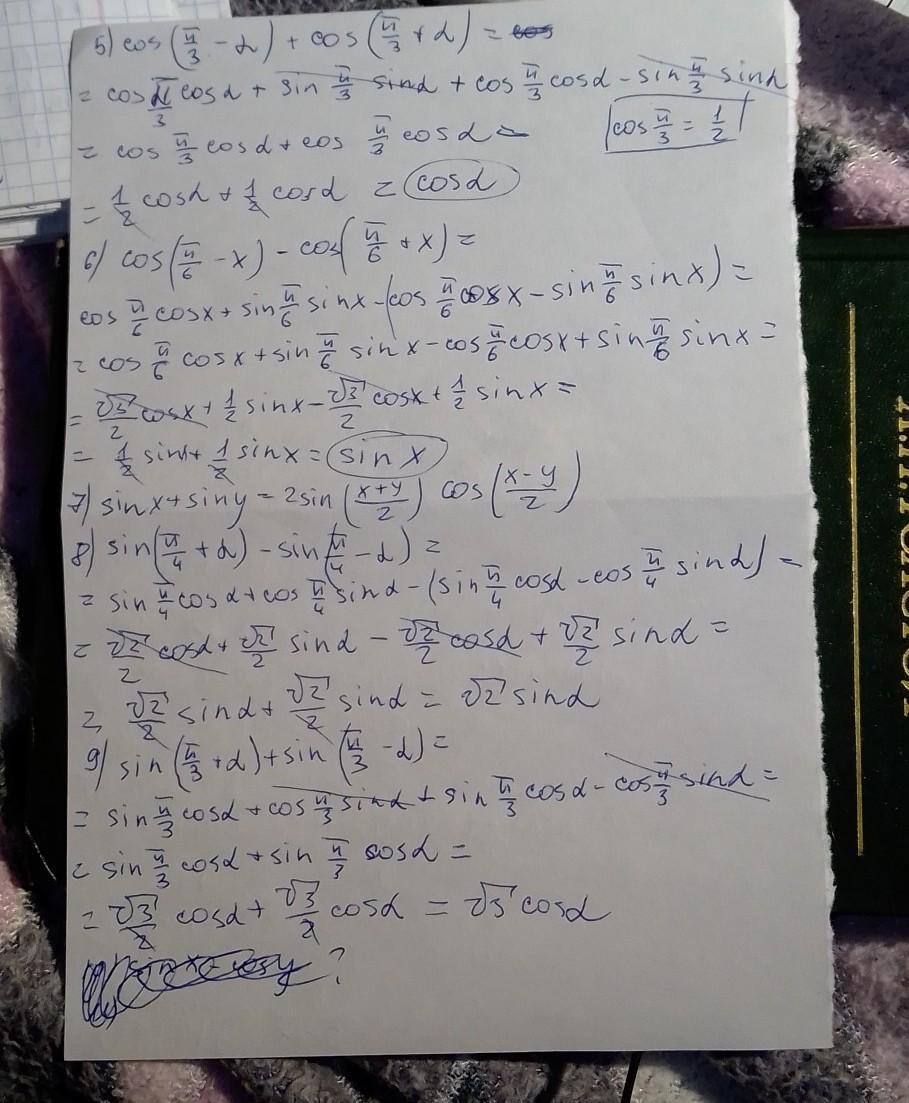 5) cos(π/3 - α) + cos(π/3 + α) =
= cos π/3 cos α + sin π/3 sin α + cos π/3 cos α - sin π/3 sin α
= cos π/3 cos α + cos π/3 cos α =
cos π/3 = 1/2
= 1/2 cos α + 1/2 cos α = cos α
6) cos(π/6 - x) - cos(π/6 + x) =
cos π/6 cos x + sin π/6 sin x - (cos π/6 cos x - sin π/6 sin x) =
= cos π/6 cos x + sin π/6 sin x - cos π/6 cos x + sin π/6 sin x =
= √3/2 cos x + 1/2 sin x - √3/2 cos x + 1/2 sin x =
= 1/2 sin x + 1/2 sin x = sin x
7) sin x + sin y = 2 sin (x+y/2) cos (x-y/2)
8) sin(π/4 + α) - sin(π/4 - α) =
= sin π/4 cos α + cos π/4 sin α - (sin π/4 cos α - cos π/4 sin α) =
= √2/2 cos α + √2/2 sin α - √2/2 cos α + √2/2 sin α =
= √2/2 sin α + √2/2 sin α = √2 sin α
9) sin(π/3 + α) + sin(π/3 - α) =
= sin π/3 cos α + cos π/3 sin α + sin π/3 cos α - cos π/3 sin α =
= sin π/3 cos α + sin π/3 cos α =
= √3/2 cos α + √3/2 cos α = √3 cos α
?